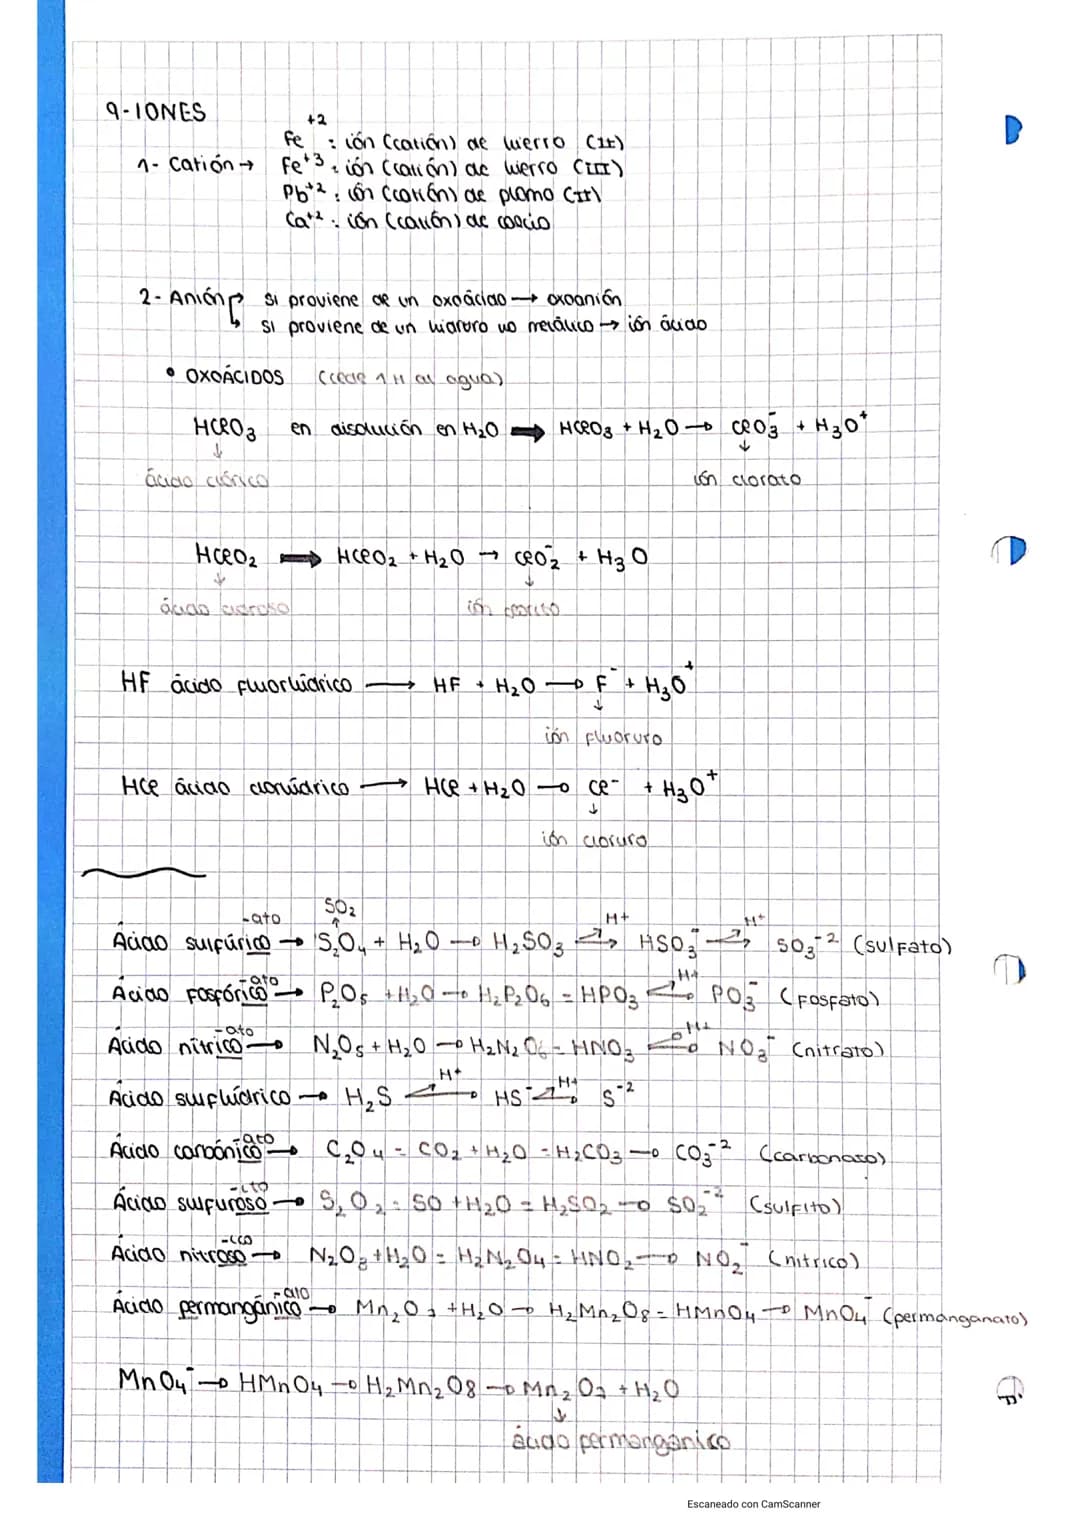 9-IONES
1- Catión → Fe⁺² : ión (catión) de hierro (II)
Fe⁺³ : ión (catión) de hierro (III)
Pb⁺² : ión (catión) de plomo (II)
Ca⁺² : ión (catión) de calcio
2- Anión → si proviene de un oxoácido → oxoanión
↳ si proviene de un hidruro no metálico → ión ácido
• OXOÁCIDOS (cede 1 H al agua)
HClO₃ en disolución en H₂O ➡ HClO₃ + H₂O → ClO₃⁻ + H₃O⁺
↓ ↓
ácido clórico ión clorato
HClO₂ ➡ HClO₂ + H₂O → ClO₂⁻ + H₃O
↓ ↓
ácido cloroso ión clorito
HF ácido fluorhídrico → HF + H₂O → F⁻ + H₃O⁺
↓
ión fluoruro
HCl ácido clorhídrico → HCl + H₂O → Cl⁻ + H₃O⁺
↓
ión cloruro
-ato SO₂ H+ H+
Ácido sulfúrico → S₂O₄ + H₂O → H₂SO₃ ⇄ HSO₃⁻ ⇄ SO₃⁻² (sulfato)
-ato H+
Ácido fosfórico → P₂O₅ + H₂O → H₂P₂O₆ = HPO₃ ⇄ PO₃⁻ (fosfato)
-ato H+
Ácido nítrico → N₂O₅ + H₂O → H₂N₂O₆ = HNO₃ ⇄ NO₃⁻ (nitrato)
H+ H+
Ácido sulfhídrico → H₂S ⇄ HS⁻ ⇄ S⁻²
-ato
Ácido carbónico → C₂O₄ = CO₂ + H₂O = H₂CO₃ → CO₃⁻² (carbonato)
-ito
Ácido sulfuroso → S₂O₂ = SO + H₂O = H₂SO₂ → SO₂⁻² (sulfito)
-ico
Ácido nitroso → N₂O₃ + H₂O = H₂N₂O₄ = HNO₂ → NO₂⁻ (nitrico)
-ato
Ácido permangánico → Mn₂O₇ + H₂O → H₂Mn₂O₈ = HMnO₄ → MnO₄⁻ (permanganato)
MnO₄⁻ → HMnO₄ → H₂Mn₂O8 → Mn₂O₇ + H₂O
↓
ácido permangánico
Escaneado con CamScanner